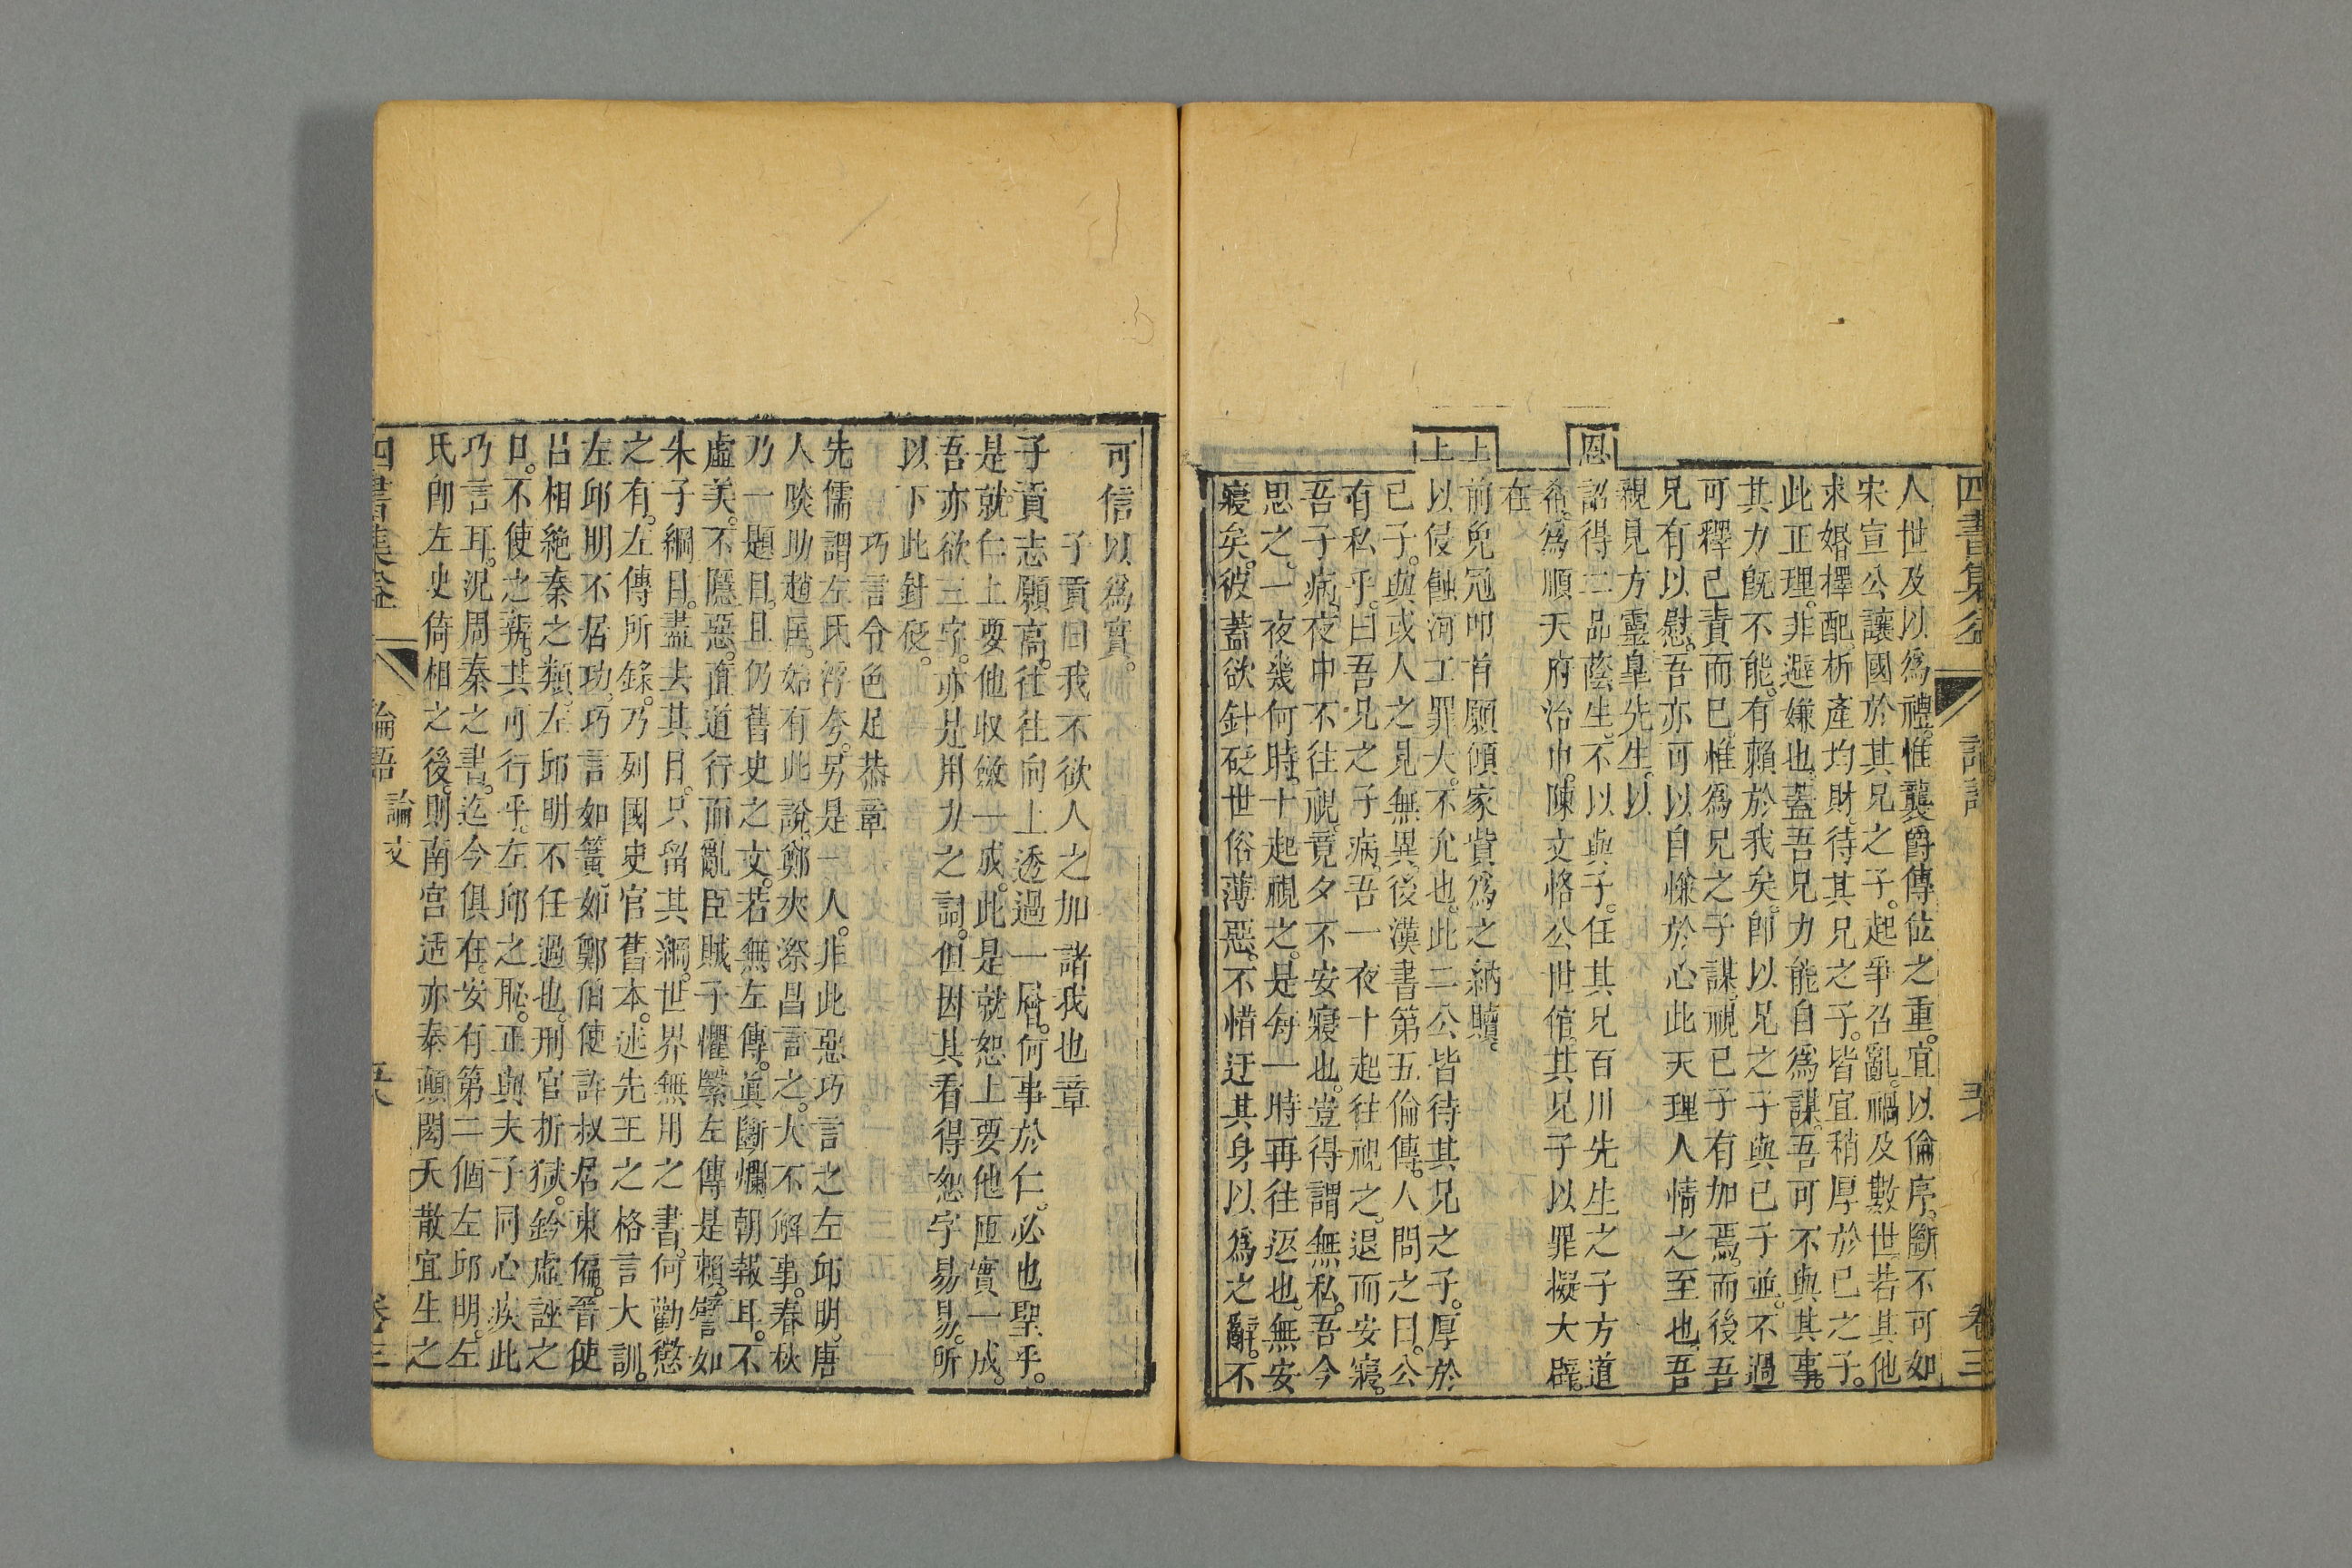 人世及以爲禮。惟襲爵傳位之重。宜以倫序。斷不可如
宋宣公讓國於其兄之子。起爭召亂。禍及數世。若其他
求婚擇配。析產均財。待其兄之子。皆宜稍厚於已之子。
此正理。非避嫌也。蓋吾兄力能自爲謀。吾可不與其事。
其力旣不能。有賴於我矣。卽以兄之子與已子並。不過
可釋已責而已。惟爲兄之子謀。視已子有加焉。而後吾
兄有以慰。吾亦可以自慊於心此天理人情之至也。吾
親見方靈臯先生。以
恩
詔得二品蔭生。不以與子。任其兄百川先生之子方道
希。爲順天府治中。陳文恪公世倌。其兄子以罪擬大辟。
在
上前免冠叩首願傾家貲爲之納贖。
上以侵蝕河工罪大。不允也。此二公皆待其兄之子。厚於
已子。與或人之見無異。後漢書第五倫傳。人問之曰。公
有私乎。曰吾兄之子病。吾一夜十起往視之。退而安寢。
吾子病。夜中不往視。竟夕不安寢也。豈得謂無私。吾今
思之。一夜幾何時。十起視之。是每一時再往返也。無安
寢矣。彼蓋欲針砭世俗薄惡。不惜迂其身以爲之辭。不
四書集 卷三
可信以爲實。
子貢曰我不欲人之加諸我也章
子貢志願高。往往向上透過一層。何事於仁。必也聖乎。
是就仁上要他收斂一成。此是就恕上要他匝實一成。
吾亦欲三字。亦是用力之詞。但因其看得恕字易易。所
以下此針砭。
巧言令色足恭章
先儒謂左氏浮夸。另是一人。非此惡巧言之左邱明。唐
人啖助趙匡。始有此說。鄭夾漈昌言之。大不解事。春秋
乃一題目。且仍舊史之文。若無左傳。眞斷爛朝報耳。不
虛美。不隱惡。直道行而亂臣賊子懼。繄左傳是賴。譬如
朱子綱目。盡去其目。只留其綱。世界無用之書。何勸懲
之有。左傳所錄。乃列國史官舊本。述先王之格言大訓。
左邱明不居功。巧言如簧。如鄭伯使許叔居東偏。晉使
呂相絶秦之類。左邱明不任過也。刑官折獄。鈐虛誣之
口。不使之辨。其可行乎。左邱之恥。正與夫子同心疾此
巧言耳。況周秦之書。迄今俱在。安有第二個左邱明。左
氏卽左史倚相之後。則南宮适亦泰顚閎夭散宜生之
四書集 論語 論文 卷三